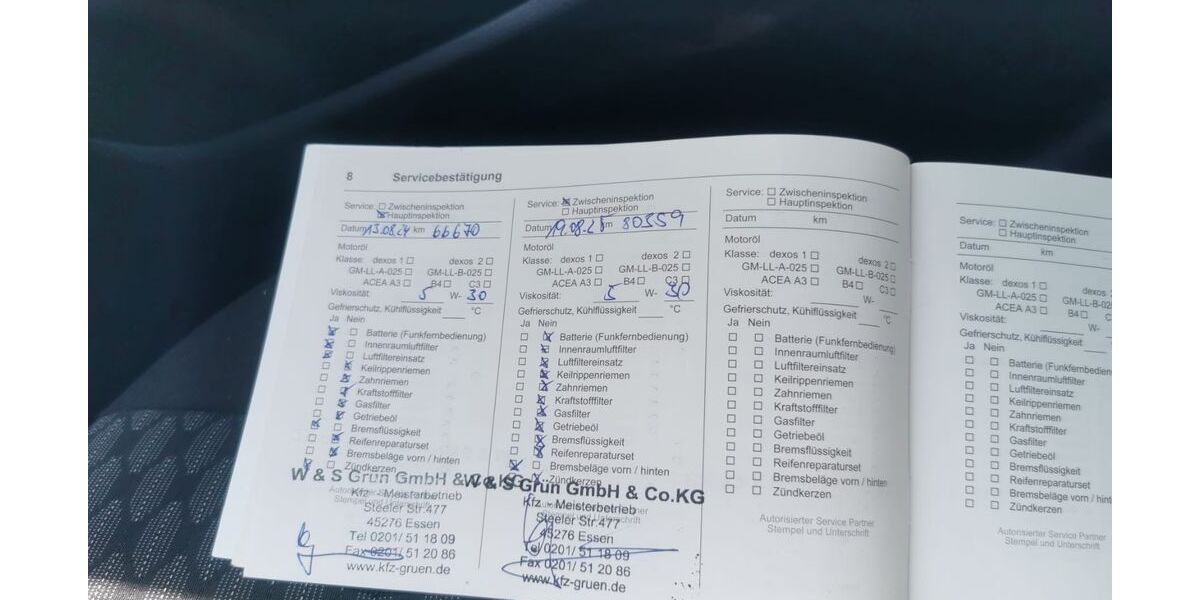 8 Servicebestätigung
Service: ☐ Zwischeninspektion
☒ Hauptinspektion
Datum 13.08.24 km 66670
Motoröl
Klasse: dexos 1 ☐ dexos 2 ☐
GM-LL-A-025 ☐ GM-LL-B-025 ☐
ACEA A3 ☐ B4 ☐ C3 ☐
Viskosität: 5 W- 30
Gefrierschutz, Kühlflüssigkeit ____ °C
Ja Nein
☒ ☐ Batterie (Funkfernbedienung)
☒ ☐ Innenraumluftfilter
☒ ☐ Luftfiltereinsatz
☐ ☒ Keilrippenriemen
☐ ☒ Zahnriemen
☐ ☒ Kraftstofffilter
☐ ☒ Gasfilter
☐ ☒ Getriebeöl
☒ ☐ Bremsflüssigkeit
☐ ☒ Reifenreparaturset
☐ ☒ Bremsbeläge vorn / hinten
☒ ☐ Zündkerzen
W & S Grün GmbH & Co.KG
Kfz - Meisterbetrieb
Steeler Str.477
45276 Essen
Tel 0201/ 51 18 09
Fax 0201/ 51 20 86
www.kfz-gruen.de
Service: ☒ Zwischeninspektion
☐ Hauptinspektion
Datum 19.08.25 km 80359
Motoröl
Klasse: dexos 1 ☐ dexos 2 ☐
GM-LL-A-025 ☐ GM-LL-B-025 ☐
ACEA A3 ☐ B4 ☐ C3 ☐
Viskosität: 5 W- 30
Gefrierschutz, Kühlflüssigkeit ____ °C
Ja Nein
☐ ☒ Batterie (Funkfernbedienung)
☐ ☒ Innenraumluftfilter
☐ ☒ Luftfiltereinsatz
☐ ☒ Keilrippenriemen
☐ ☒ Zahnriemen
☐ ☒ Kraftstofffilter
☐ ☒ Gasfilter
☐ ☒ Getriebeöl
☐ ☒ Bremsflüssigkeit
☐ ☒ Reifenreparaturset
☒ ☐ Bremsbeläge vorn / hinten
☒ Zündkerzen
W & S Grün GmbH & Co.KG
Kfz - Meisterbetrieb
Steeler Str.477
45276 Essen
Tel 0201/ 51 18 09
Fax 0201/ 51 20 86
www.kfz-gruen.de
Service: ☐ Zwischeninspektion
☐ Hauptinspektion
Datum km
Motoröl
Klasse: dexos 1 ☐ dexos 2 ☐
GM-LL-A-025 ☐ GM-LL-B-025 ☐
ACEA A3 ☐ B4 ☐ C3 ☐
Viskosität: ____ W-
Gefrierschutz, Kühlflüssigkeit ____ °C
Ja Nein
☐ ☐ Batterie (Funkfernbedienung)
☐ ☐ Innenraumluftfilter
☐ ☐ Luftfiltereinsatz
☐ ☐ Keilrippenriemen
☐ ☐ Zahnriemen
☐ ☐ Kraftstofffilter
☐ ☐ Gasfilter
☐ ☐ Getriebeöl
☐ ☐ Bremsflüssigkeit
☐ ☐ Reifenreparaturset
☐ ☐ Bremsbeläge vorn / hinten
☐ ☐ Zündkerzen
Autorisierter Service Partner
Stempel und Unterschrift
Service: ☐ Zwischeninspektion
☐ Hauptinspektion
Datum km
Motoröl
Klasse: dexos 1 ☐ dexos 2
GM-LL-A-025 ☐ GM-LL-B-02
ACEA A3 ☐ B4 ☐ C3
Viskosität: ____ W-
Gefrierschutz, Kühlflüssigkeit ____
Ja Nein
☐ ☐ Batterie (Funkfernbedien
☐ ☐ Innenraumluftfilter
☐ ☐ Luftfiltereinsatz
☐ ☐ Keilrippenriemen
☐ ☐ Zahnriemen
☐ ☐ Kraftstofffilter
☐ ☐ Gasfilter
☐ ☐ Getriebeöl
☐ ☐ Bremsflüssigkeit
☐ ☐ Reifenreparaturset
☐ ☐ Bremsbeläge vorn / hint
☐ ☐ Zündkerzen
Autorisierter Service Partner
Stempel und Unterschrift